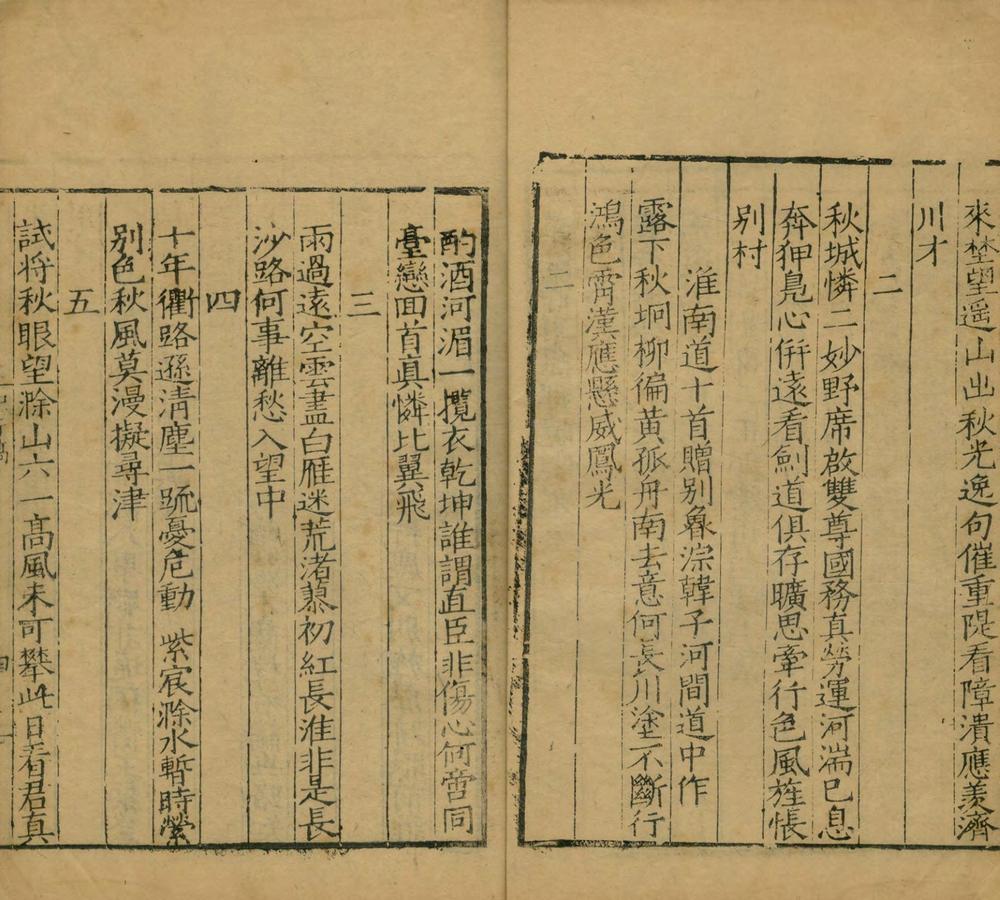 來埜望遥山出秋光逸句催重隄看障潰應羨濟
川才
二
秋城憐二妙野席啟雙尊國務真勞運河湍已息
奔狎鳬心倂遠看劍道俱存曠思牽行色風旌悵
别村
淮南道十首贈别魯淙韓子河間道中作
露下秋坰柳徧黄孤舟南去意何長川塗不斷行
鴻色霄漢應懸威鳳光
二
酌酒河湄一攬衣乾坤誰謂直臣非傷心何啻同
臺戀回首真憐比翼飛
三
雨過遠空雲盡白雁迷荒渚蓼初紅長淮非是長
沙路何事離愁入望中
四
十年衢路遜清塵一疏憂危動 紫宸滁水暫時縈
别色秋風莫漫擬尋津
五
試将秋眼望滁山六一高風未可攀此日看君真